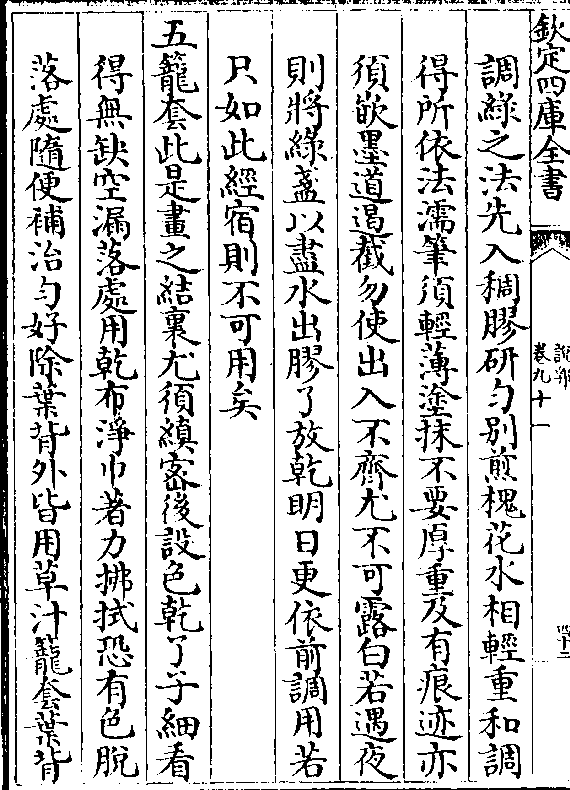 欽定四庫全書
說郛
卷九十一
調綠之法先入稠膠研勻別煎槐花水相輕重和調
得所依法濡筆須輕薄塗抹不要厚重及有痕迹亦
須嵌墨道遏截勿使出入不齊尤不可露白若遇夜
則將綠盞以盡水出膠了放乾明日更依前調用若
只如此經宿則不可用矣
五籠套此是畫之結裹尤須縝密後設色乾了子細看
得無缺空漏落處用乾布淨巾著力拂拭恐有色脫
落處隨便補治勻好除葉背外皆用草汁籠套葉背